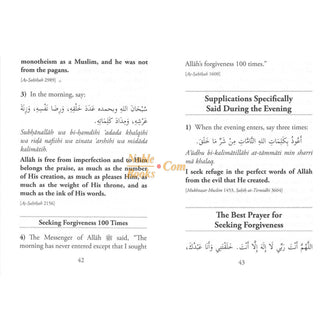 monotheism as a Muslim, and he was not
from the pagans.
[As-Sahihah 2989]
3) In the morning, say:
سُبْحَانَ اللهِ وَبِحَمْدِهِ عَدَدَ خَلْقِهِ، وَرِضَا نَفْسِهِ، وَزِنَةَ
عَرْشِهِ، وَمِدَادَ كَلِمَاتِهِ.
Subḥānallāh wa bi-ḥamdihi 'adada khalqihi
wa riḍā nafsihi wa zinata 'arshihi wa midāda
kalimātih.
Allah is free from imperfection and to Him
belongs the praise, as much as the number
of His creation, as much as pleases Him, as
much as the weight of His throne, and as
much as the ink of His words.
[As-Sahihah 2156]
Seeking Forgiveness 100 Times
4) The Messenger of Allāh ﷺ said, "The
morning has never entered except that I sought
42
Allāh's forgiveness 100 times."
[As-Sahihah 1600]
Supplications Specifically
Said During the Evening
1) When the evening enters, say three times:
أَعُوذُ بِكَلِمَاتِ اللهِ التَّامَّاتِ مِنْ شَرِّ مَا خَلَقَ.
A'ūdhu bi-kalimātillāhi at-tāmmāti min sherri
mā khalaq.
I seek refuge in the perfect words of Allah
from the evil that He created.
[Mukhtasar Muslim 1453, Sahih at-Tirmidhi 3604]
The Best Prayer for
Seeking Forgiveness
اللَّهُمَّ أَنْتَ رَبِّي لَا إِلَهَ إِلَّا أَنْتَ، خَلَقْتَنِي وَأَنَا عَبْدُكَ،
43
Noble
Books.Com